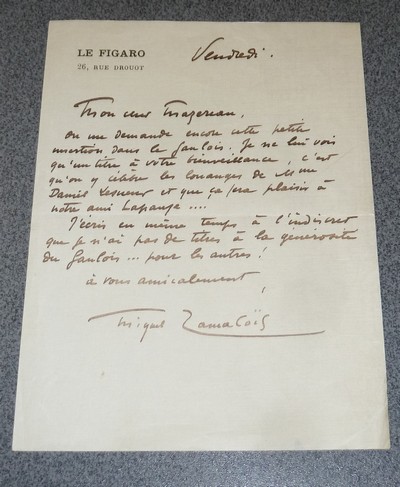 LE FIGARO
26, RUE DROUOT
Vendredi.
Mon cher Mazereau,
on me demande encore cette petite
insertion dans le Gaulois. Je ne lui vois
qu'un titre à votre bienveillance, c'est
qu'on y célèbre les louanges de Mme
Daniel Lesueur et que ça fera plaisir à
notre ami Lapauze ....
J'écris en même temps à l'indiscret
que je n'ai pas de titres à la générosité
du Gaulois ... pour les autres !
à vous amicalement,
Miguel Zamacoïs